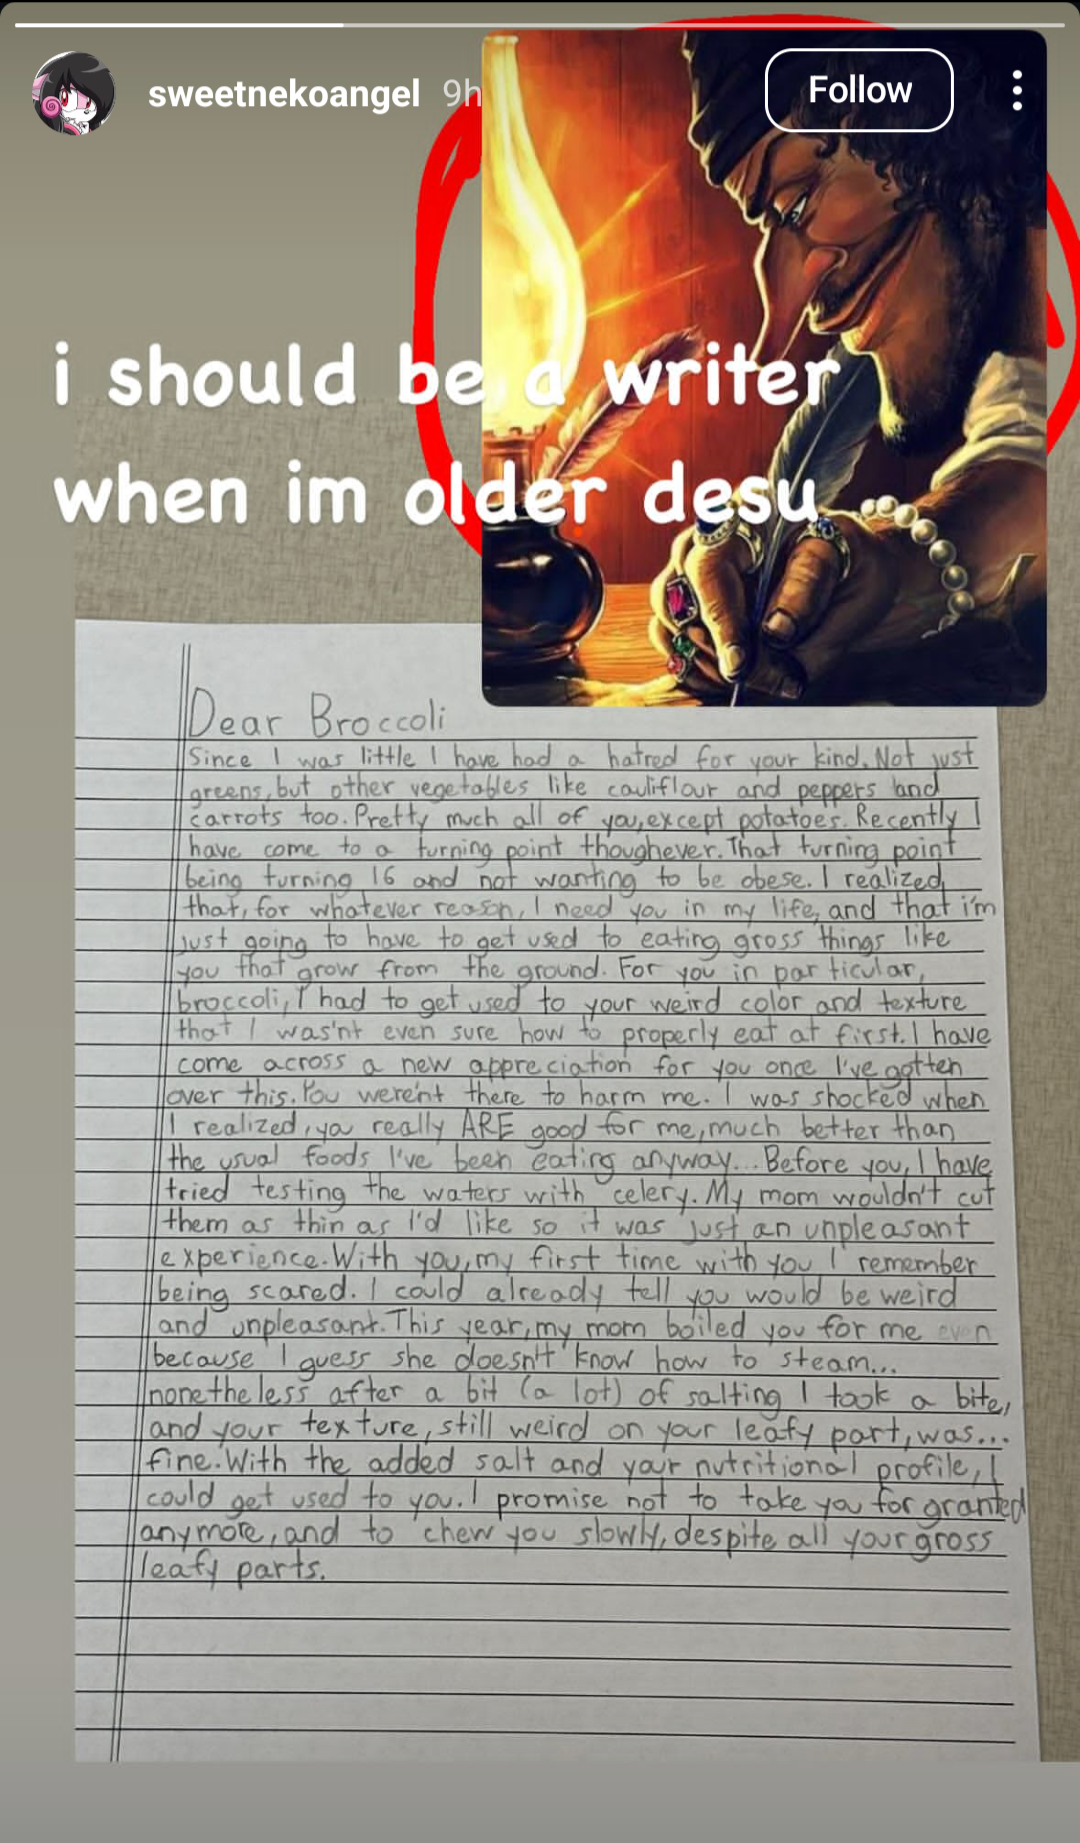 sweetnekoangel 9h
Follow
i should be a writer
when im older desu
Dear Broccoli
Since I was little I have had a hatred for your kind. Not just
greens, but other vegetables like cauliflour and peppers and
carrots too. Pretty much all of you, except potatoes. Recently I
have come to a turning point thoughever. That turning point
being turning 16 and not wanting to be obese. I realized
that, for whatever reason, I need you in my life, and that i'm
just going to have to get used to eating gross things like
you that grow from the ground. For you in par ticular,
broccoli, I had to get used to your weird color and texture
that I was'nt even sure how to properly eat at first. I have
come across a new appreciation for you once I've gotten
over this. You weren't there to harm me. I was shocked when
I realized, you really ARE good for me, much better than
the usual foods I've been eating anyway... Before you, I have
tried testing the waters with celery. My mom wouldn't cut
them as thin as I'd like so it was just an unpleasant
experience. With you, my first time with you I remember
being scared. I could already tell you would be weird
and unpleasant. This year, my mom boiled you for me even
because I guess she doesn't know how to steam...
nonetheless after a bit (a lot) of salting I took a bite,
and your texture, still weird on your leafy part, was...
fine. With the added salt and your nutritional profile, I
could get used to you. I promise not to take you for granted
anymore, and to chew you slowly, despite all your gross
leafy parts.